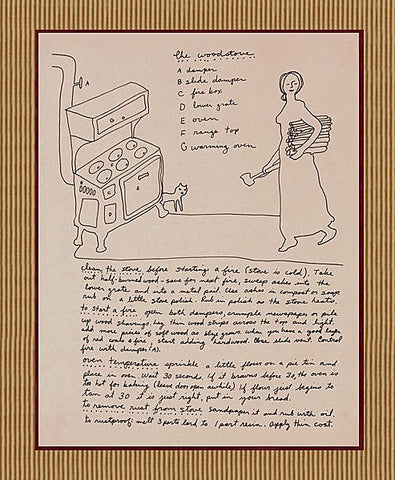 the woodstove
A damper
B slide damper
C fire box
D lower grate
E oven
F range top
G warming oven
A
G
F
E
clean the stove before starting a fire (stove is cold). Take
out half-burned wood - save for next fire, sweep ashes into the
lower grate and into a metal pail. Use ashes in compost or soap
rub on a little stove polish. Rub in polish as the stove heats.
to start a fire open both dampers, crumple newspaper or pile
up wood shavings, lay thin wood strips across the top and light.
add more pieces of soft wood as blaze grows. when you have a good layer
of red coals & fire, start adding hardwood. Close slide vent. Control
fire with damper (A).
oven temperature sprinkle a little flour on a pie tin and
place in oven. Wait 30 seconds. If it browns before 30, the oven is
too hot for baking (leave door open awhile) If flour just begins to
tan at 30 it is just right, put in your bread.
to remove rust from stove sandpaper it and rub with oil.
to rustproof: melt 3 parts lard to 1 part resin. Apply thin coat.